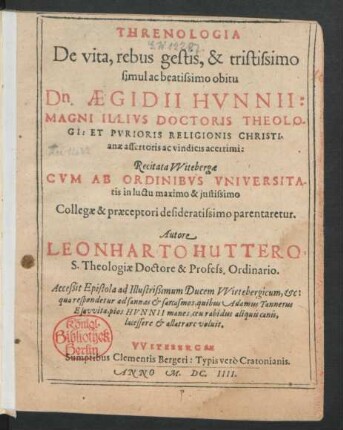 THRENOLOGIA
De vita, rebus gestis, & tristissimo
simul ac beatissimo obitu
Dn. ÆGIDII HVNNII:
MAGNI ILLIVS DOCTORIS THEOLO-
GI: ET PVRIORIS RELIGIONIS CHRISTI-
anæ assertoris ac vindicis acerrimi:
Recitata VVitebergæ
CVM AB ORDINIBVS VNIVERSITA-
tis in luctu maximo & justissimo
Collegæ & præceptori desideratissimo parentaretur.
Autore
LEONHARTO HUTTERO.
S. Theologiæ Doctore & Profess. Ordinario.
Accessit Epistola ad Illustrissimum Ducem VVirtebergicum, &c:
qua respondetur ad sannas & quibus Adamus Tannerus
Ejuvvita pios HVNNII manes, ceu rabidus aliquis canis,
lacessere & allatrare voluit.
Königl.
Bibliothek
Berlin
VVITEBERGÆ
Sumptibus Clementis Bergeri: Typis verò Cratonianis.
ANNO M. DC. IIII.